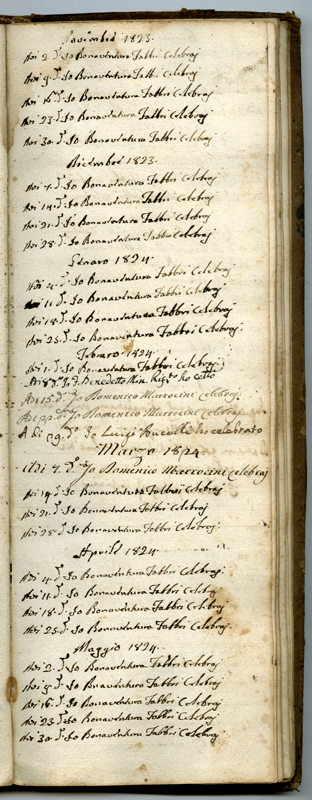 Novembre 1823.
Adì 2. d.º Io Bonaventura Fabbri Celebraj
Adì 9. d.º Io Bonaventura Fabbri Celebraj
Adì 16. d.º Io Bonaventura Fabbri Celebraj
Adì 23. d.º Io Bonaventura Fabbri Celebraj
Adì 30. d.º Io Bonaventura Fabbri Celebraj
Dicembre 1823.
Adì 7. d.º Io Bonaventura Fabbri Celebraj
Adì 14. d.º Io Bonaventura Fabbri Celebraj
Adì 21. d.º Io Bonaventura Fabbri Celebraj
Adì 28. d.º Io Bonaventura Fabbri Celebraj
Genaro 1824.
Adì 4. d.º Io Bonaventura Fabbri Celebraj
Adì 11. d.º Io Bonaventura Fabbri Celebraj
Adì 18. d.º Io Bonaventura Fabbri Celebraj
Adì 25. d.º Io Bonaventura Fabbri Celebraj.
Febraro 1824.
Adì 1. d.º Io Bonaventura Fabbri Celebraj
Adì 8 d.º Io F. Benedetto Min. ho
Adì 15 d.º Io Domenico Marrocini Celebraj
Adì 22 d.º Io Domenico Marrocini Celebraj
A dì 29. d.º Io Luigi ho celebrato
Marzo 1824
Adì 7. d.º Io Domenico Marrocini Celebraj
Adì 14. d.º Io Bonaventura Fabbri Celebraj
Adì 21. d.º Io Bonaventura Fabbri Celebraj
Adì 28. d.º Io Bonaventura Fabbri Celebraj.
Aprile 1824
Adì 4. d.º Io Bonaventura Fabbri Celebraj
Adì 11. d.º Io Bonaventura Fabbri Celebraj
Adì 18. d.º Io Bonaventura Fabbri Celebraj
Adì 25. d.º Io Bonaventura Fabbri Celebraj.
Maggio 1824.
Adì 2. d.º Io Bonaventura Fabbri Celebraj
Adì 9. d.º Io Bonaventura Fabbri Celebraj
Adì 16. d.º Io Bonaventura Fabbri Celebraj
Adì 23. d.º Io Bonaventura Fabbri Celebraj
Adì 30. d.º Io Bonaventura Fabbri Celebraj